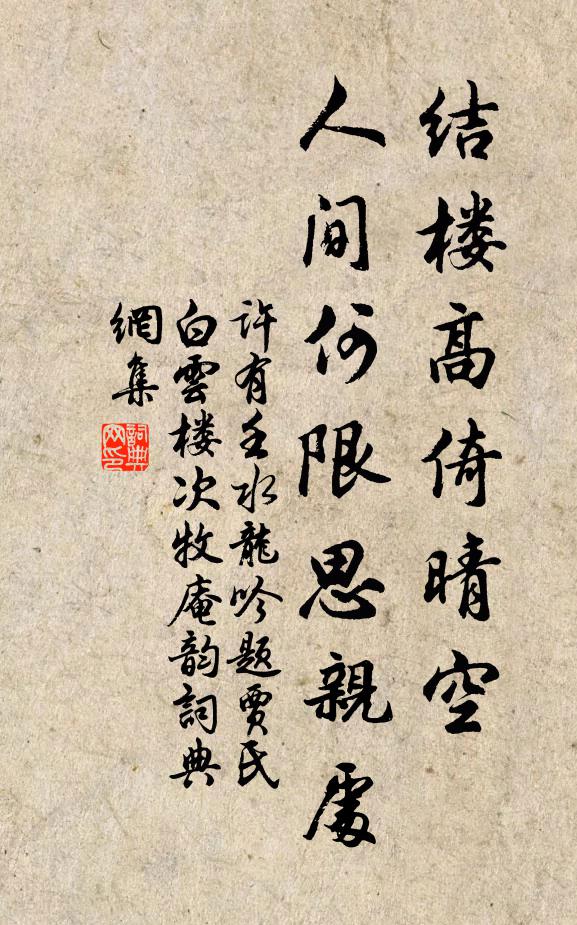 结楼高倚晴空
人间何限思親處
許有壬水龍吟题賈氏
白雲楼次牧庵韵詞典
網集
詞典
网印